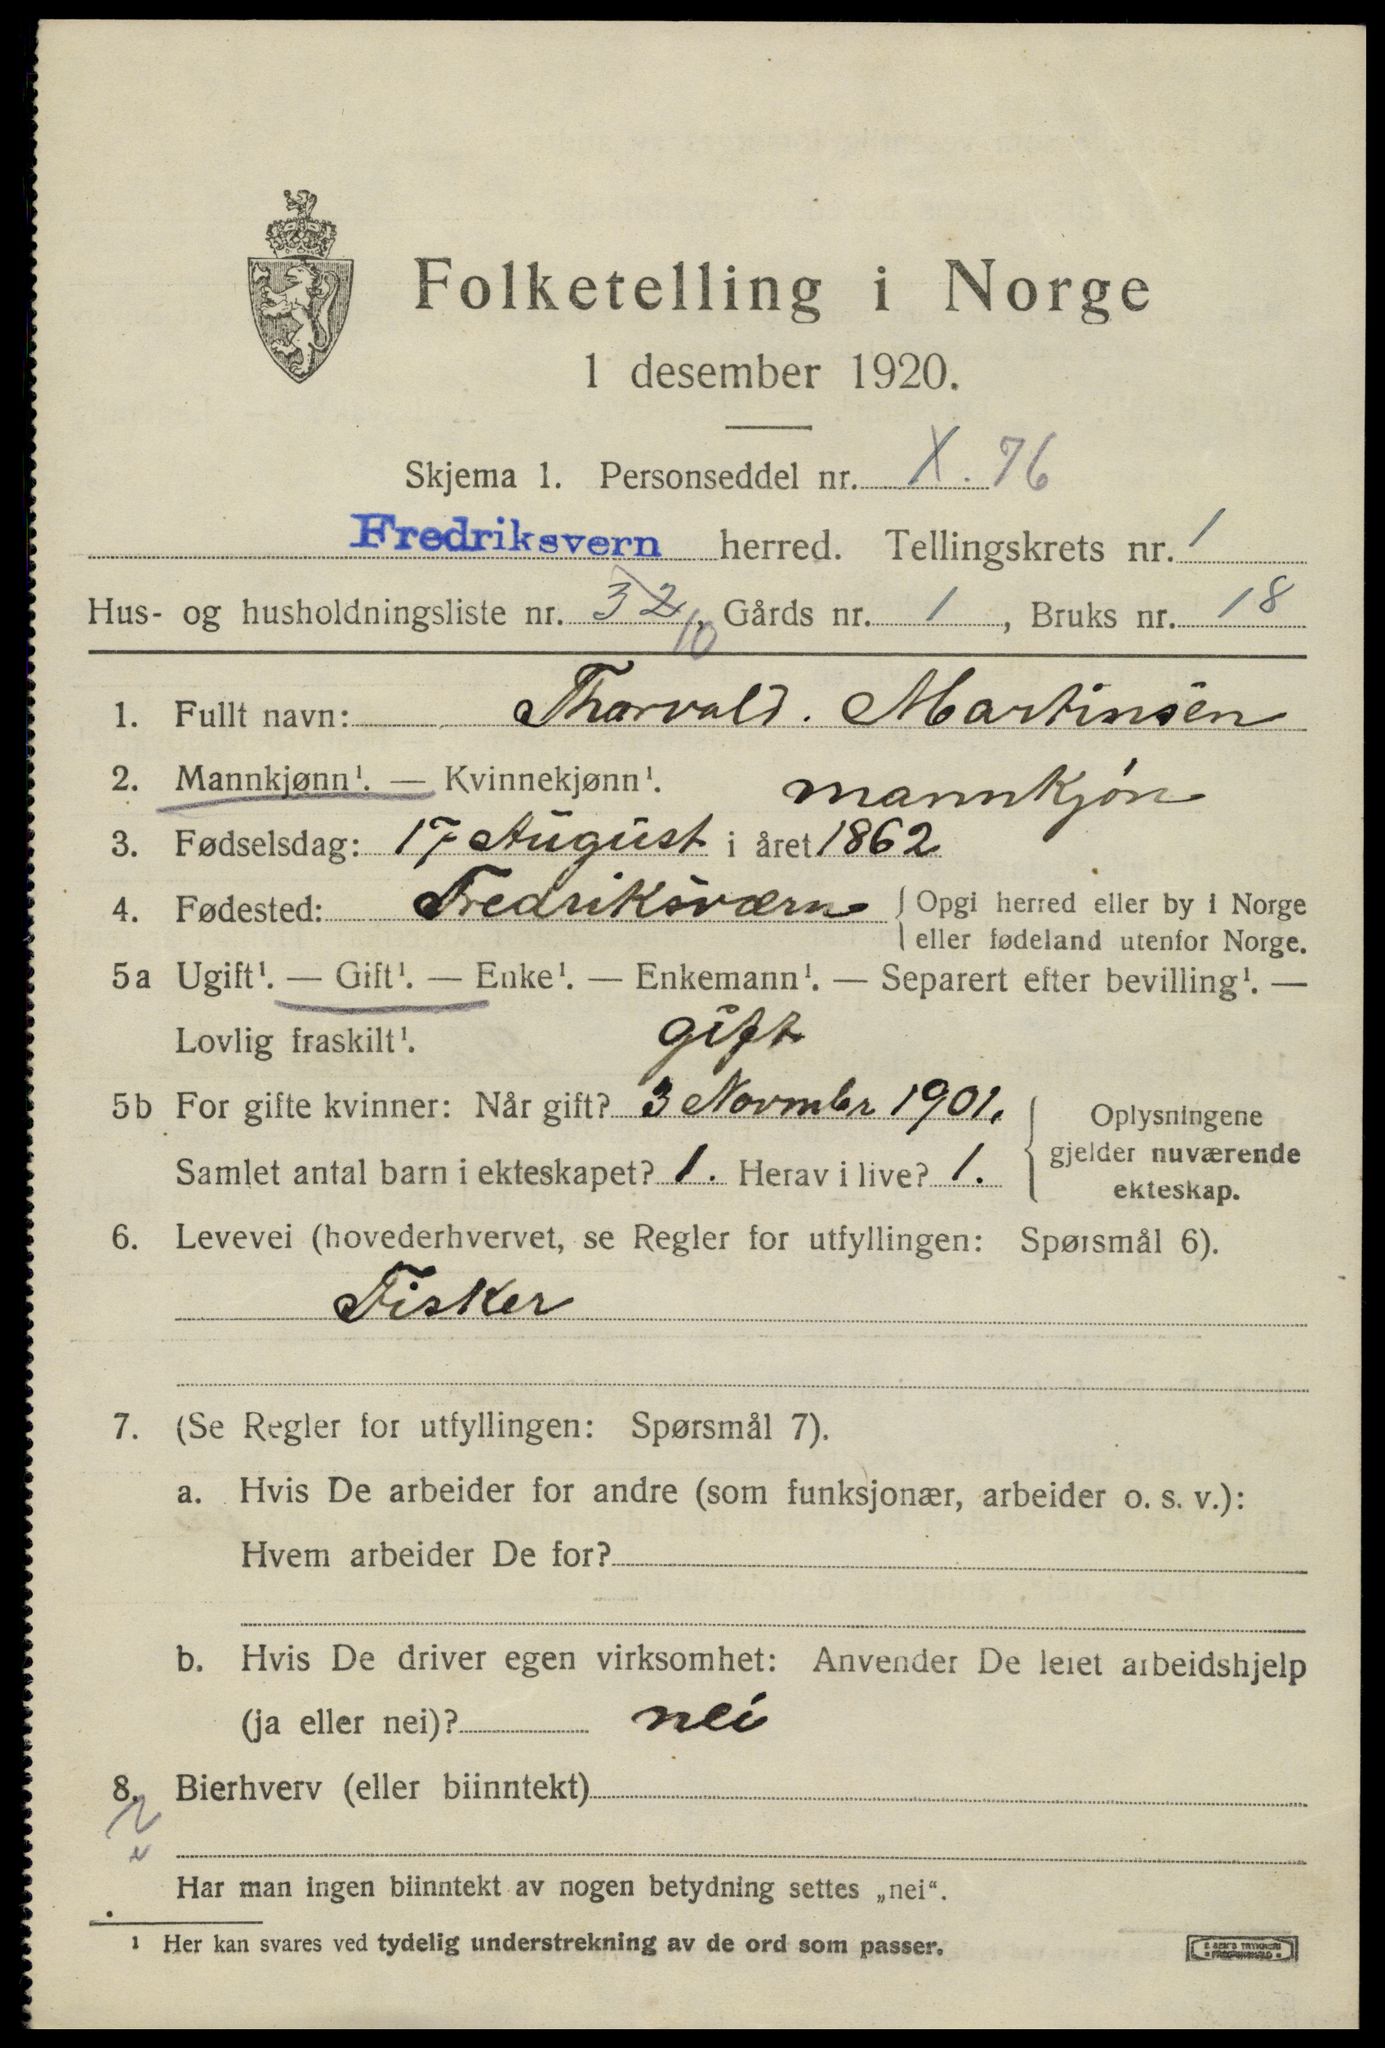 Folketelling i Norge
1 desember 1920.
Skjema 1. Personseddel nr. X. 76
Fredriksvern herred. Tellingskrets nr. 1
Hus- og husholdningsliste nr. 32 10, Gårds nr. 1, Bruks nr. 18
1. Fullt navn: Thorvald. Martinsen
2. Mannkjønn¹. — Kvinnekjønn¹. mannkjøn
3. Fødselsdag: 17 August i året 1862
4. Fødested: Fredriksværn { Opgi herred eller by i Norge
eller fødeland utenfor Norge.
5a Ugift¹. — Gift¹. — Enke¹. — Enkemann¹. — Separert efter bevilling¹. —
Lovlig fraskilt¹. gift
5b For gifte kvinner: Når gift? 3 Novmbr 1901.
Samlet antal barn i ekteskapet? 1. Herav i live? 1.
{ Oplysningene
gjelder nuværende
ekteskap.
6. Levevei (hovederhvervet, se Regler for utfyllingen: Spørsmål 6).
Fisker
7. (Se Regler for utfyllingen: Spørsmål 7).
a. Hvis De arbeider for andre (som funksjonær, arbeider o. s. v.):
Hvem arbeider De for?
b. Hvis De driver egen virksomhet: Anvender De leiet arbeidshjelp
(ja eller nei)? nei
8. Bierhverv (eller biinntekt)
Har man ingen biinntekt av nogen betydning settes „nei“.
¹ Her kan svares ved tydelig understrekning av de ord som passer.